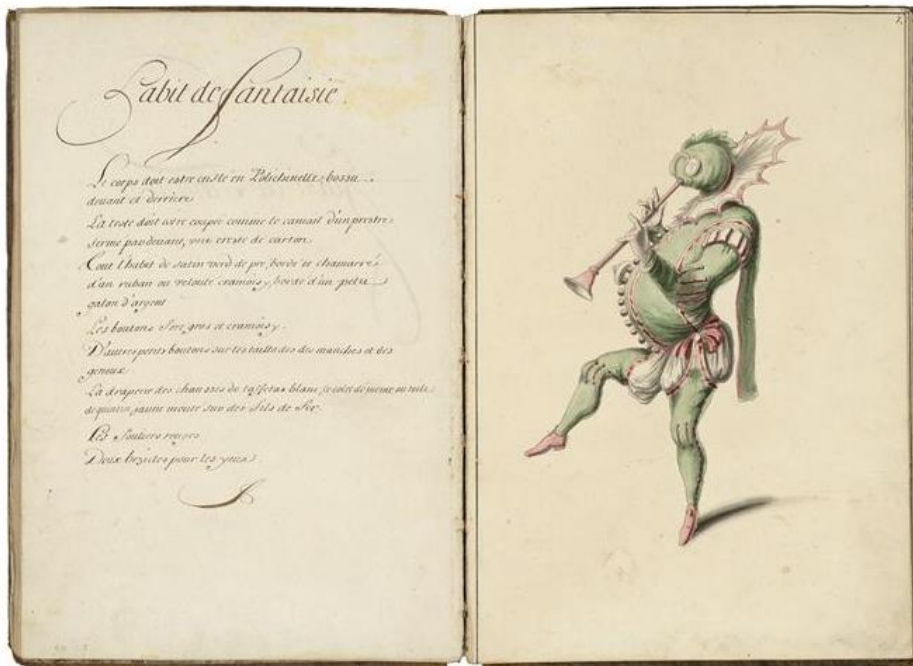 Habit de fantaisie.
Le corps doit estre enflé en Polichinelle, bossu
deuant et derriere
La teste doit estre coupée comme le camail d'un prestre
fermé par deuant, une creste de carton
Tout l'habit de satin verd de pré, bordé et chamarré
d'un ruban ou velouté cramoisy, bordé d'un petit
galon d'argent
Les boutons gros et cramoisy.
D'autres petits boutons sur les tailla des des manches et des
genoux
La draperie des chausses de taffetas blanc, le colet de mesme ou toile
de quintin jaune monté sur des fils de fer.
Les souliers rouges
Deux bezicles pour les yeux.